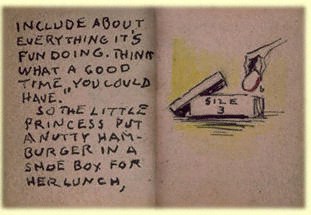 INCLUDE ABOUT
EVERYTHING IT'S
FUN DOING. THINK
WHAT A GOOD
TIME YOU COULD
HAVE.
SO THE LITTLE
PRINCESS PUT
A NUTTY HAM-
BURGER IN A
SHOE BOX FOR
HER LUNCH,
SIZE
3